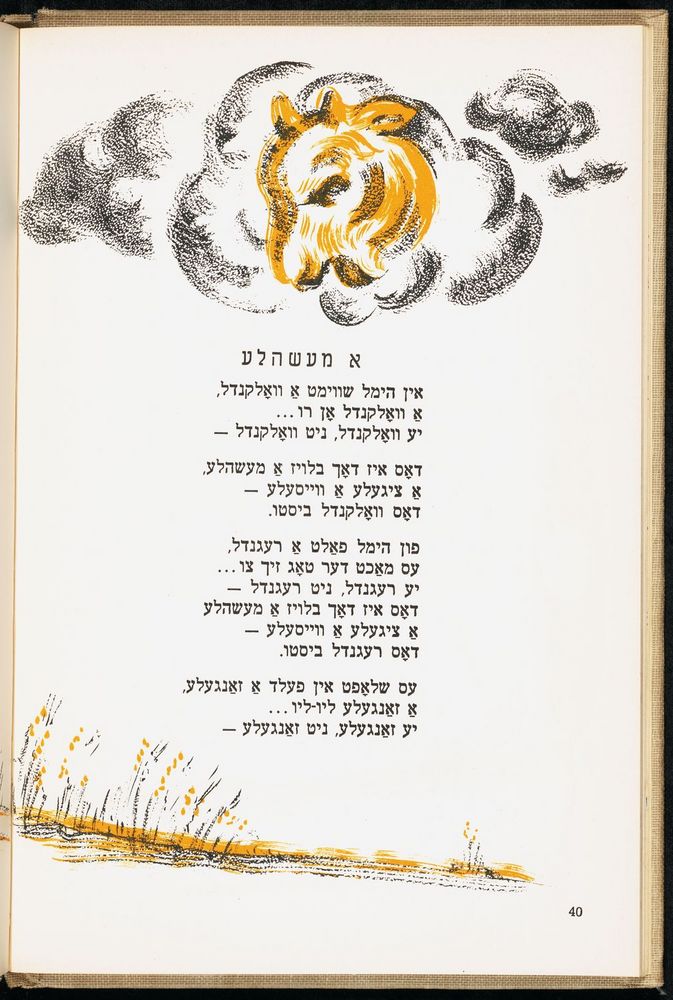 א מעשהלע
אין הימל שווימט אַ וואָלקנדל,
אַ וואָלקנדל אָן רו...
יע וואָלקנדל, ניט וואָלקנדל —
דאָס איז דאָך בלויז אַ מעשהלע,
אַ ציגעלע אַ ווייסעלע —
דאָס וואָלקנדל ביסטו.
פון הימל פאַלט אַ רעגנדל,
עס מאַכט דער טאָג זיך צו...
יע רעגנדל, ניט רעגנדל —
דאָס איז דאָך בלויז אַ מעשהלע
אַ ציגעלע אַ ווייסעלע —
דאָס רעגנדל ביסטו.
עס שלאָפט אין פעלד אַ זאַנגעלע,
אַ זאַנגעלע ליו-ליו...
יע זאַנגעלע, ניט זאַנגעלע —
40